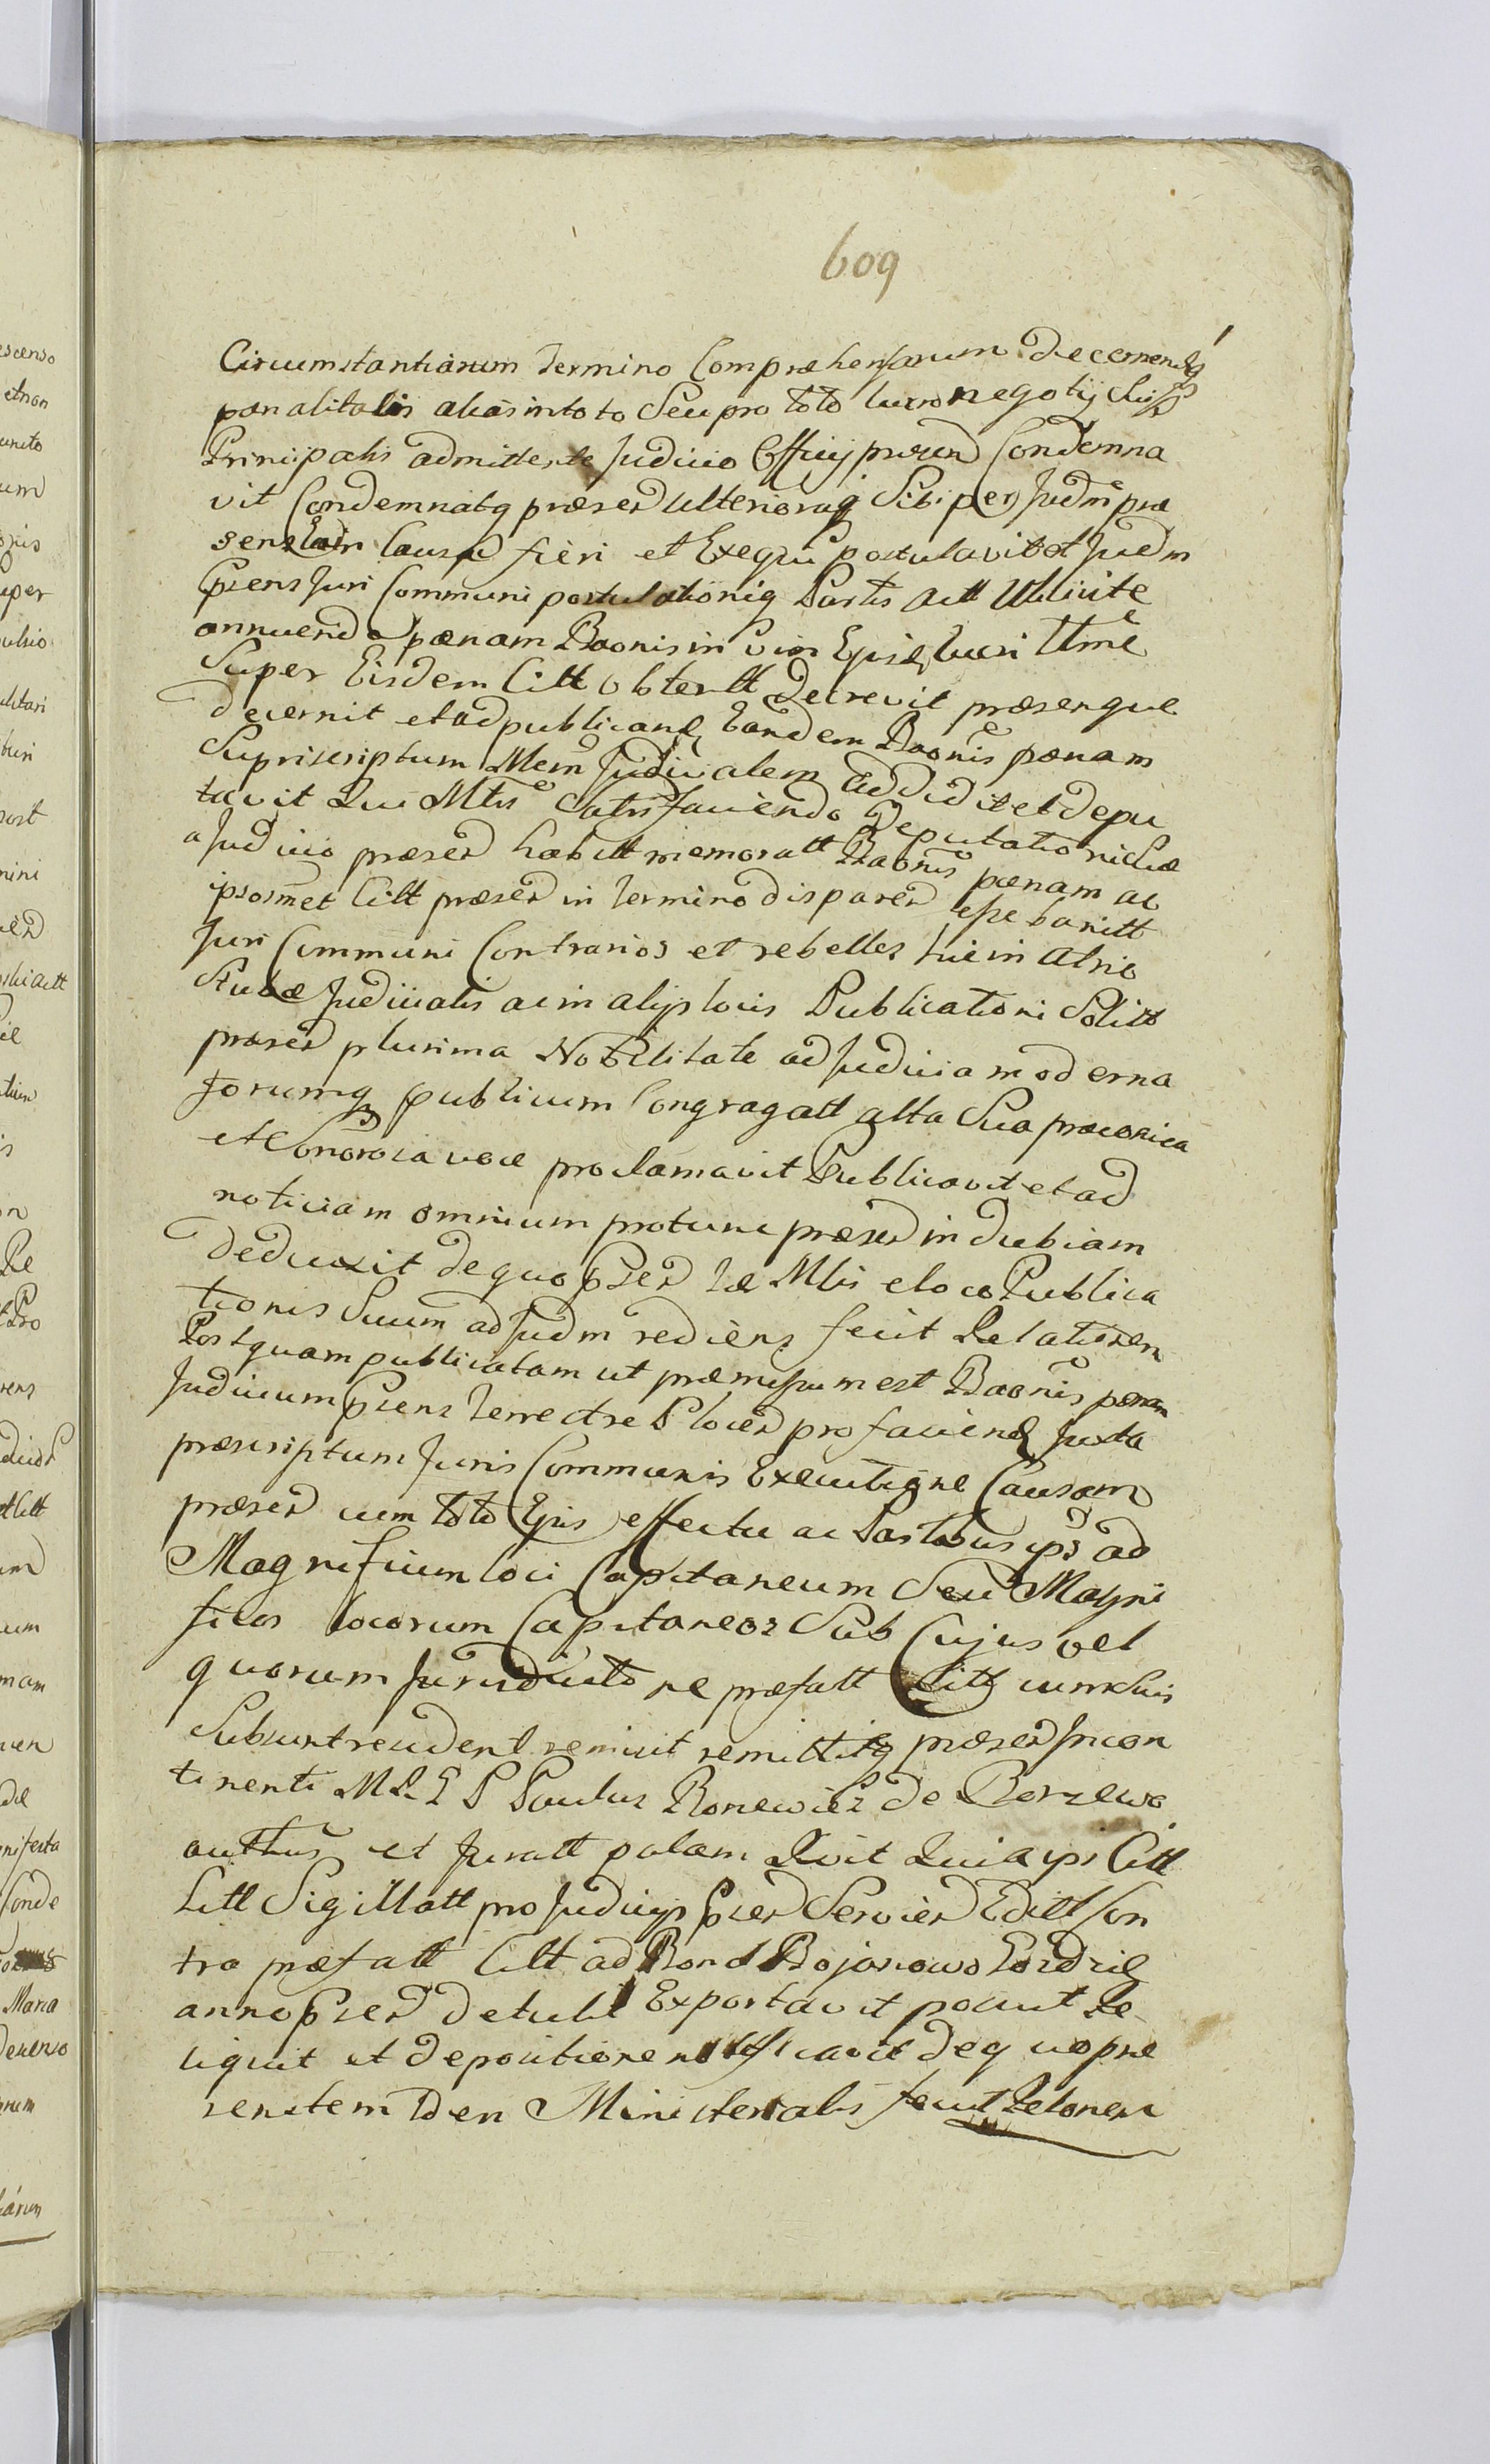 609
Circumstantiarum Termino Compraehensarum decernendq
paenalitatis alias in toto Seu pro toto lucro negotij
Principalis admittente Judicio Officij praesen Condemna
vit Condemnatq praesen ulterioraq Sibi per Judm prae
sens Eadn Causa fieri et Exequi postulavit et Judm
Psens Juri Communi postulationiq Partis Actt licite
annuendo paenam Baonis in vim Ejusd lucri ttme
Super Eisdem Citt obtentt decrevit praesensque
decernit et ad publicand Eandem Baonis paenam
Supriscriptum Mem Judicialem addidit et depu
tavit Qui Mtis Satisfaciendo Deputationi Suae
a Judicio praesen habitt memoratt Baonis paenam ac
ipsosmet Citt praesen in termino disparen esse banitt
Juri Communi Contrarios et rebelles hic in atrio
Stubae Judicialis ac in alijs locis Publicationi Solitt
praesen plurima Nobilitate ad Judicia moderna
forumq publicum Congragatt alta Sua praeconica
et Sonorosa voce proclamavit Publicavit et ad
noticiam omnium protunc praesen indubiam
deduxit de quo Psen Idem Mlis e loco Publica
tionis Suum ad Judm rediens fecit Relationem
Postquam publicatam ut praemissum est Baonis paenam
Judicium Psens terrestre Plocen pro faciend Juxta
praescriptum Juris Communis Executione Causam
praesen cum toto Ejus effectu ac Partibus ips ad
Magnificum loci Capitaneum Seu Magni
ficos locorum Capitaneos Sub Cujus vel
quorum Jurisdictione praefatt Citt cum Suis
Subsunt resident remisit remittitq praesen Incon
tinenti M R E P Paulus Roniewicz de Borzewo
authus et Juratt palam dixit Quia ips Citt
Litt Sigillatt pro Judicijs Psen Servien Editt Con
tra praefatt Citt ad Bona Bojanowo
anno Psen detulit Exportavit posuit Re
liquit et depositionem notificavit de quo prae
sentem Iden Ministerialis fecit Relonem